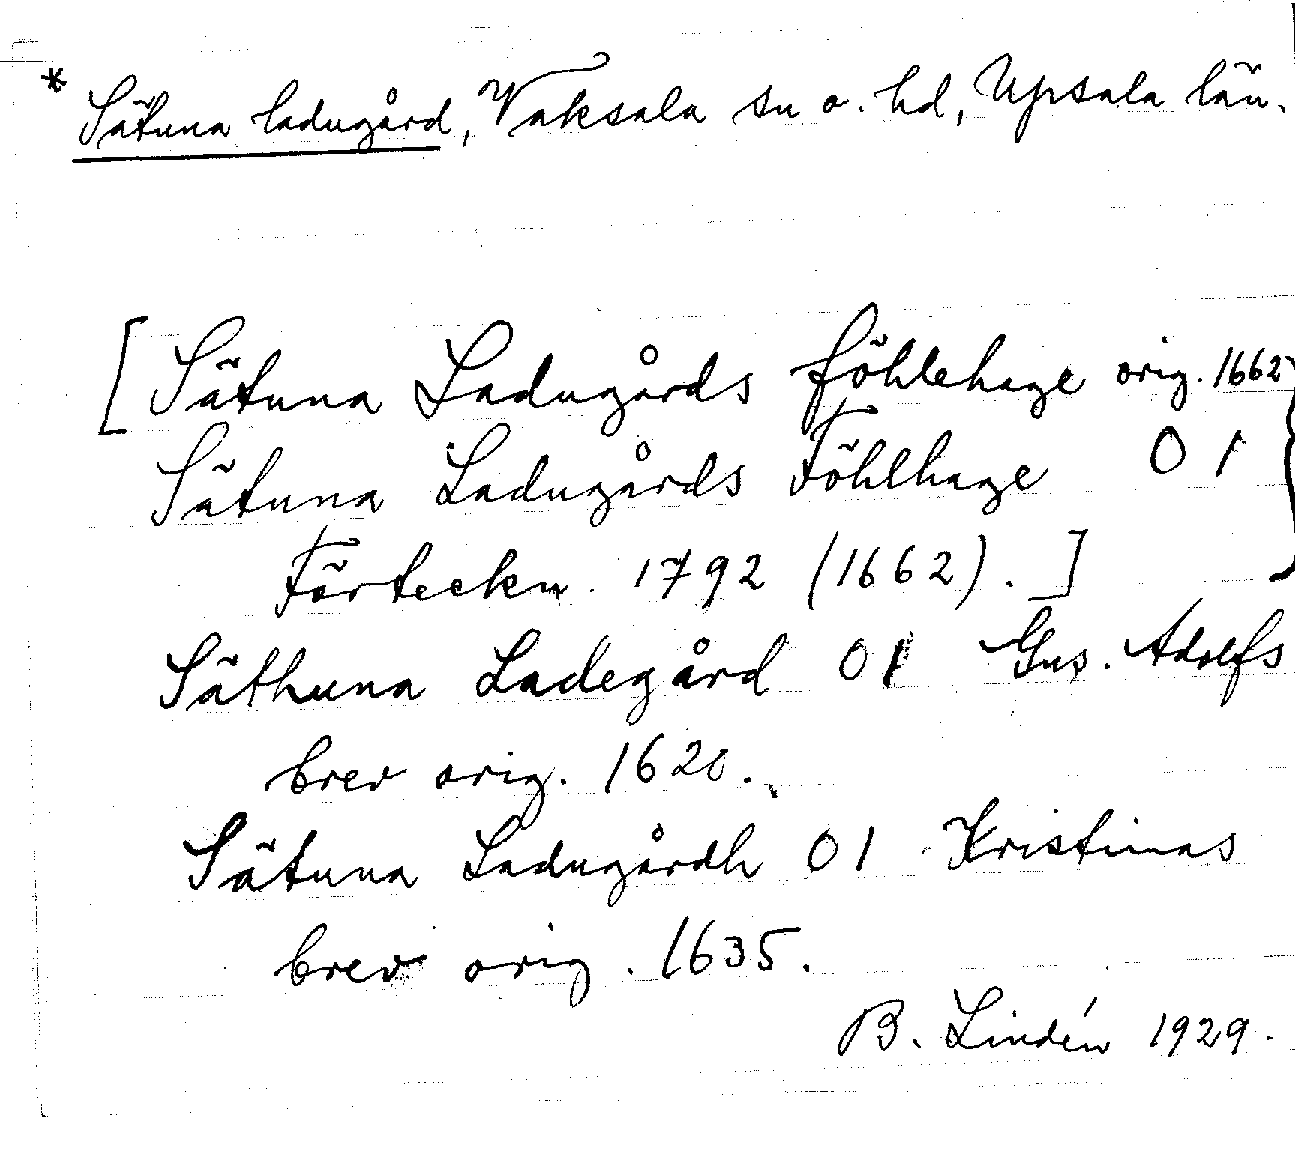 * Sätuna ladugård, Vaksala sn o. hd, Upsala län.
[Sätuna Ladugårds föhlehage orig. 1662
Sätuna Ladugårds Föhlhage 01
Förteckn. 1792 (1662).]
Säthuna Ladegård 01 Gus. Adolfs
brev orig. 1620.
Sätuna Ladugårdh 01 Kristinas
brev orig. 1635.
B. Lindén 1929.